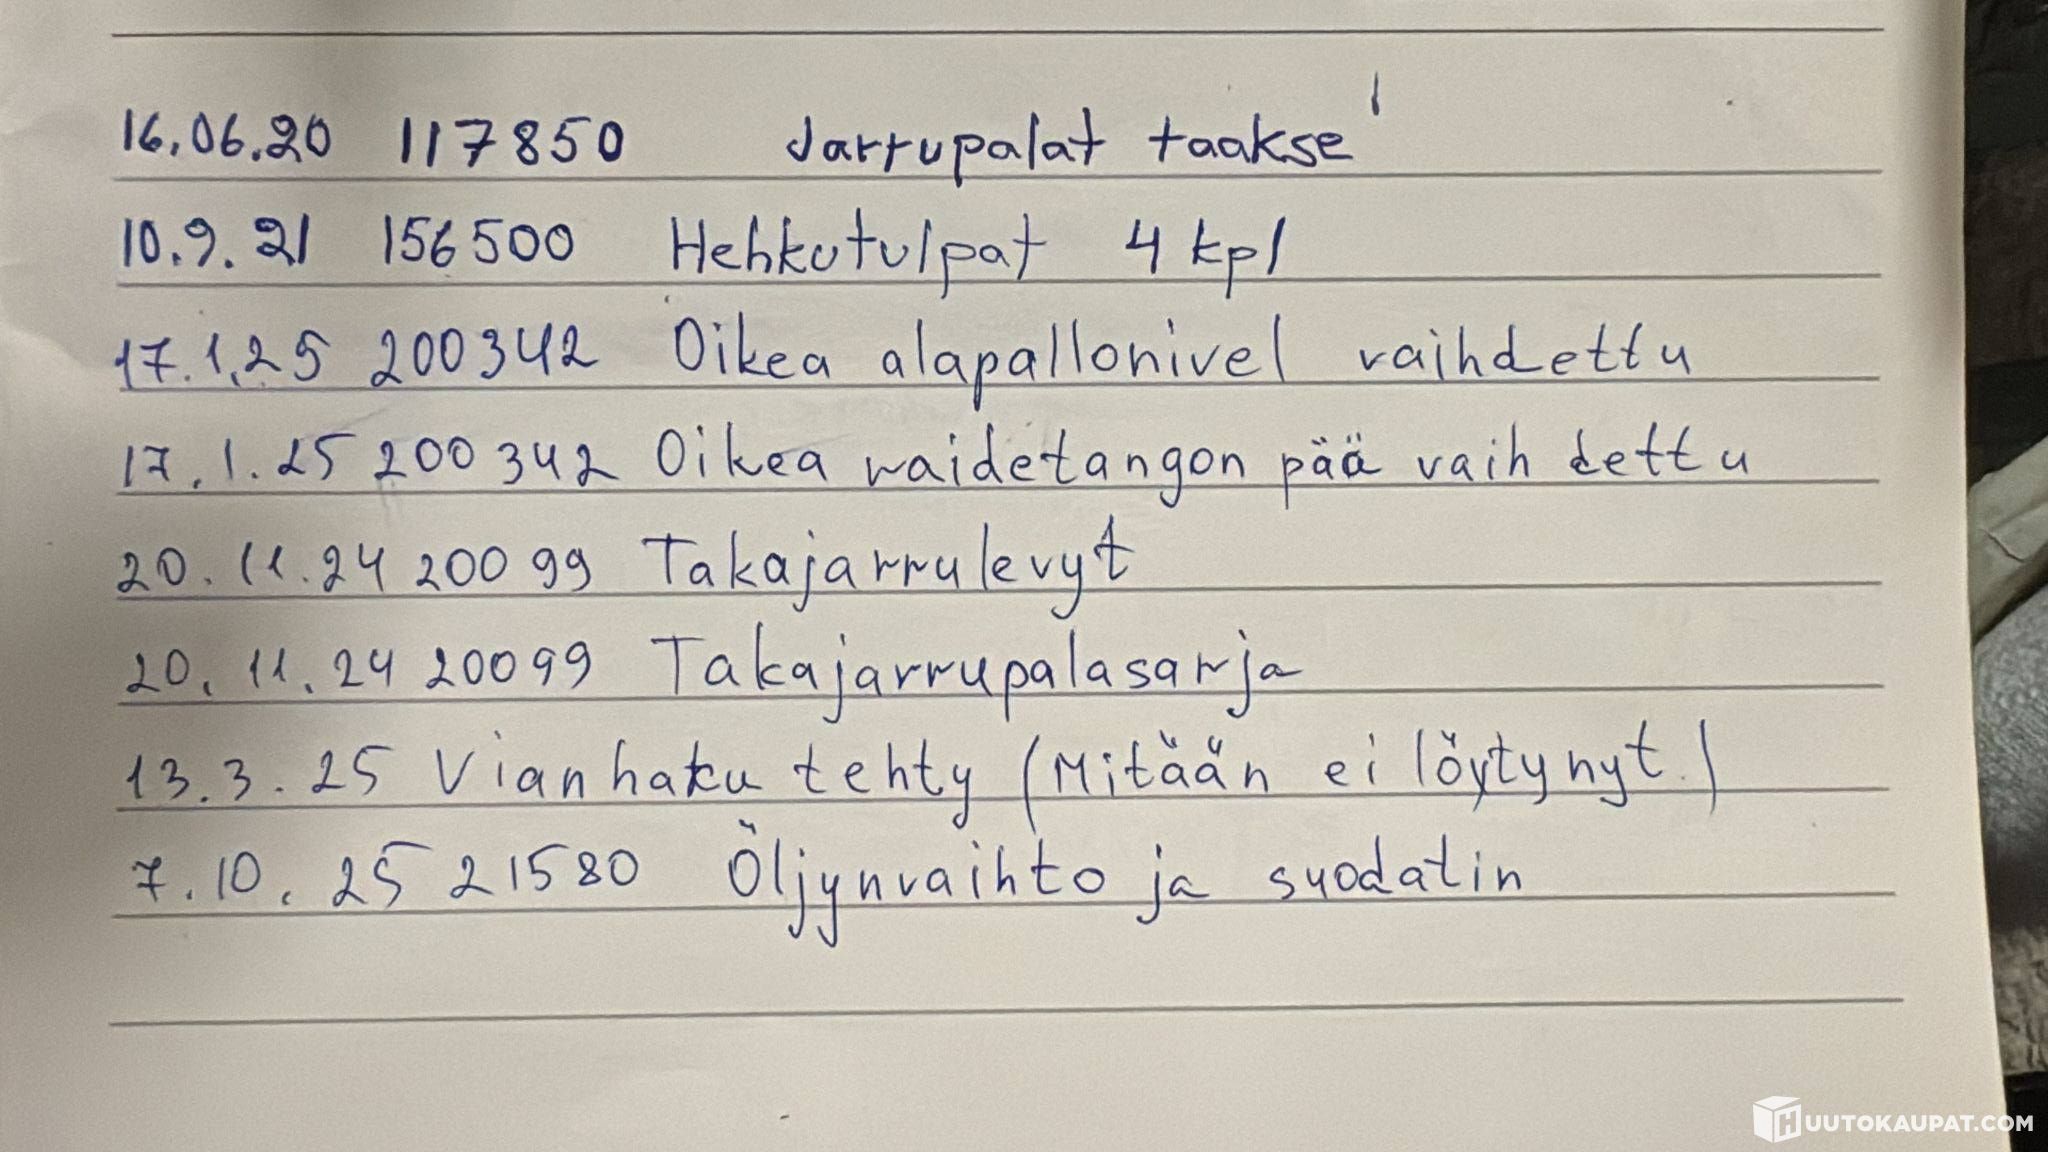 16.06.20 117850 Jarrupalat taakse
10.9.21 156500 Hehkutulpat 4 kpl
17.1.25 200342 Oikea alapallonivel vaihdettu
17.1.25 200342 Oikea raidetangon pää vaihdettu
20.11.24 20099 Takajarrulevyt
20.11.24 20099 Takajarrupalasarja
13.3.25 Vianhaku tehty (Mitään ei löytynyt.)
7.10.25 21580 Öljynvaihto ja suodatin
HUUTOKAUPAT.COM